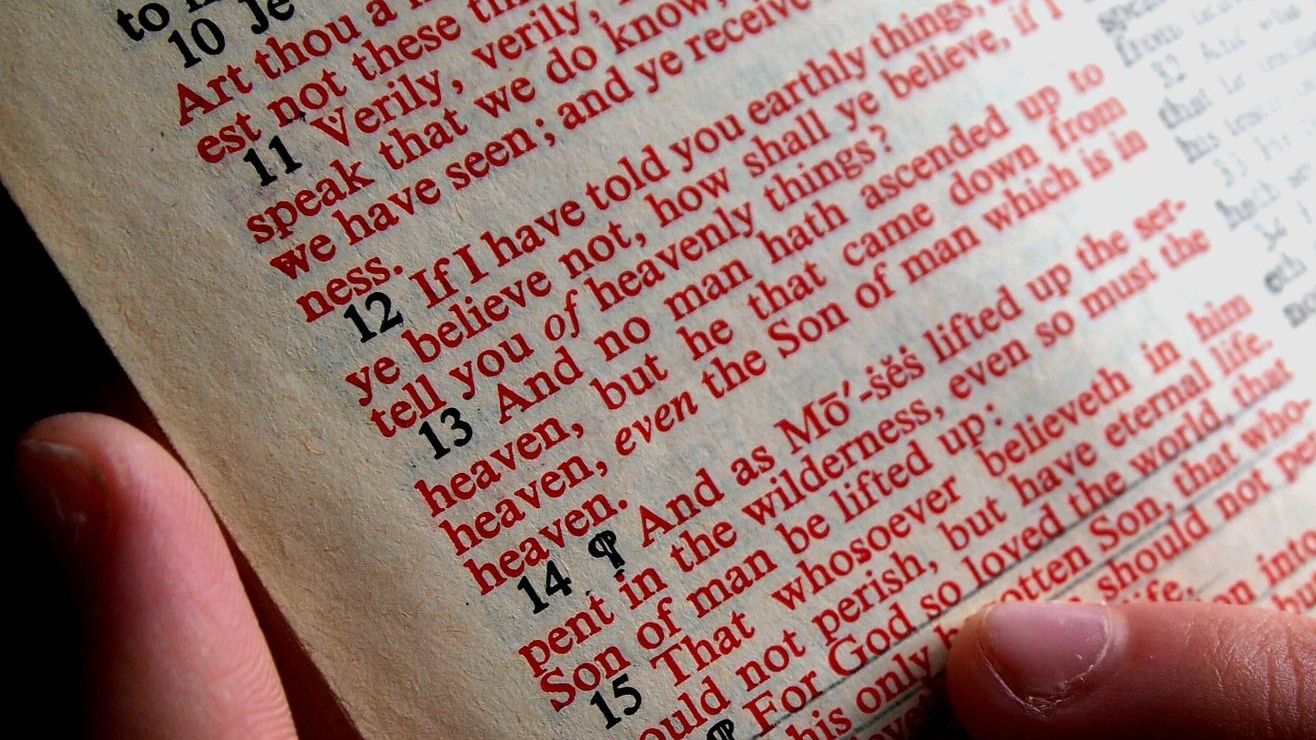 to
10 Je
Art thou a
est not these
11 Verily, verily,
speak that we do know,
we have seen; and ye receive
ness.
12 If I have told you earthly things,
ye believe not, how shall ye believe, if I
tell you of heavenly things?
13 And no man hath ascended up to
heaven, but he that came down from
heaven, even the Son of man which is in
heaven.
14 ¶ And as Mō′-ṡĕṡ lifted up the ser-
pent in the wilderness, even so must the
Son of man be lifted up:
15 That whosoever believeth in him
ould not perish, but have eternal life.
¶ For God so loved the world, that
his only otten Son, that who-
should not pe
life.
on into
bu
from
12 And
that
his
33
hath
34
eth